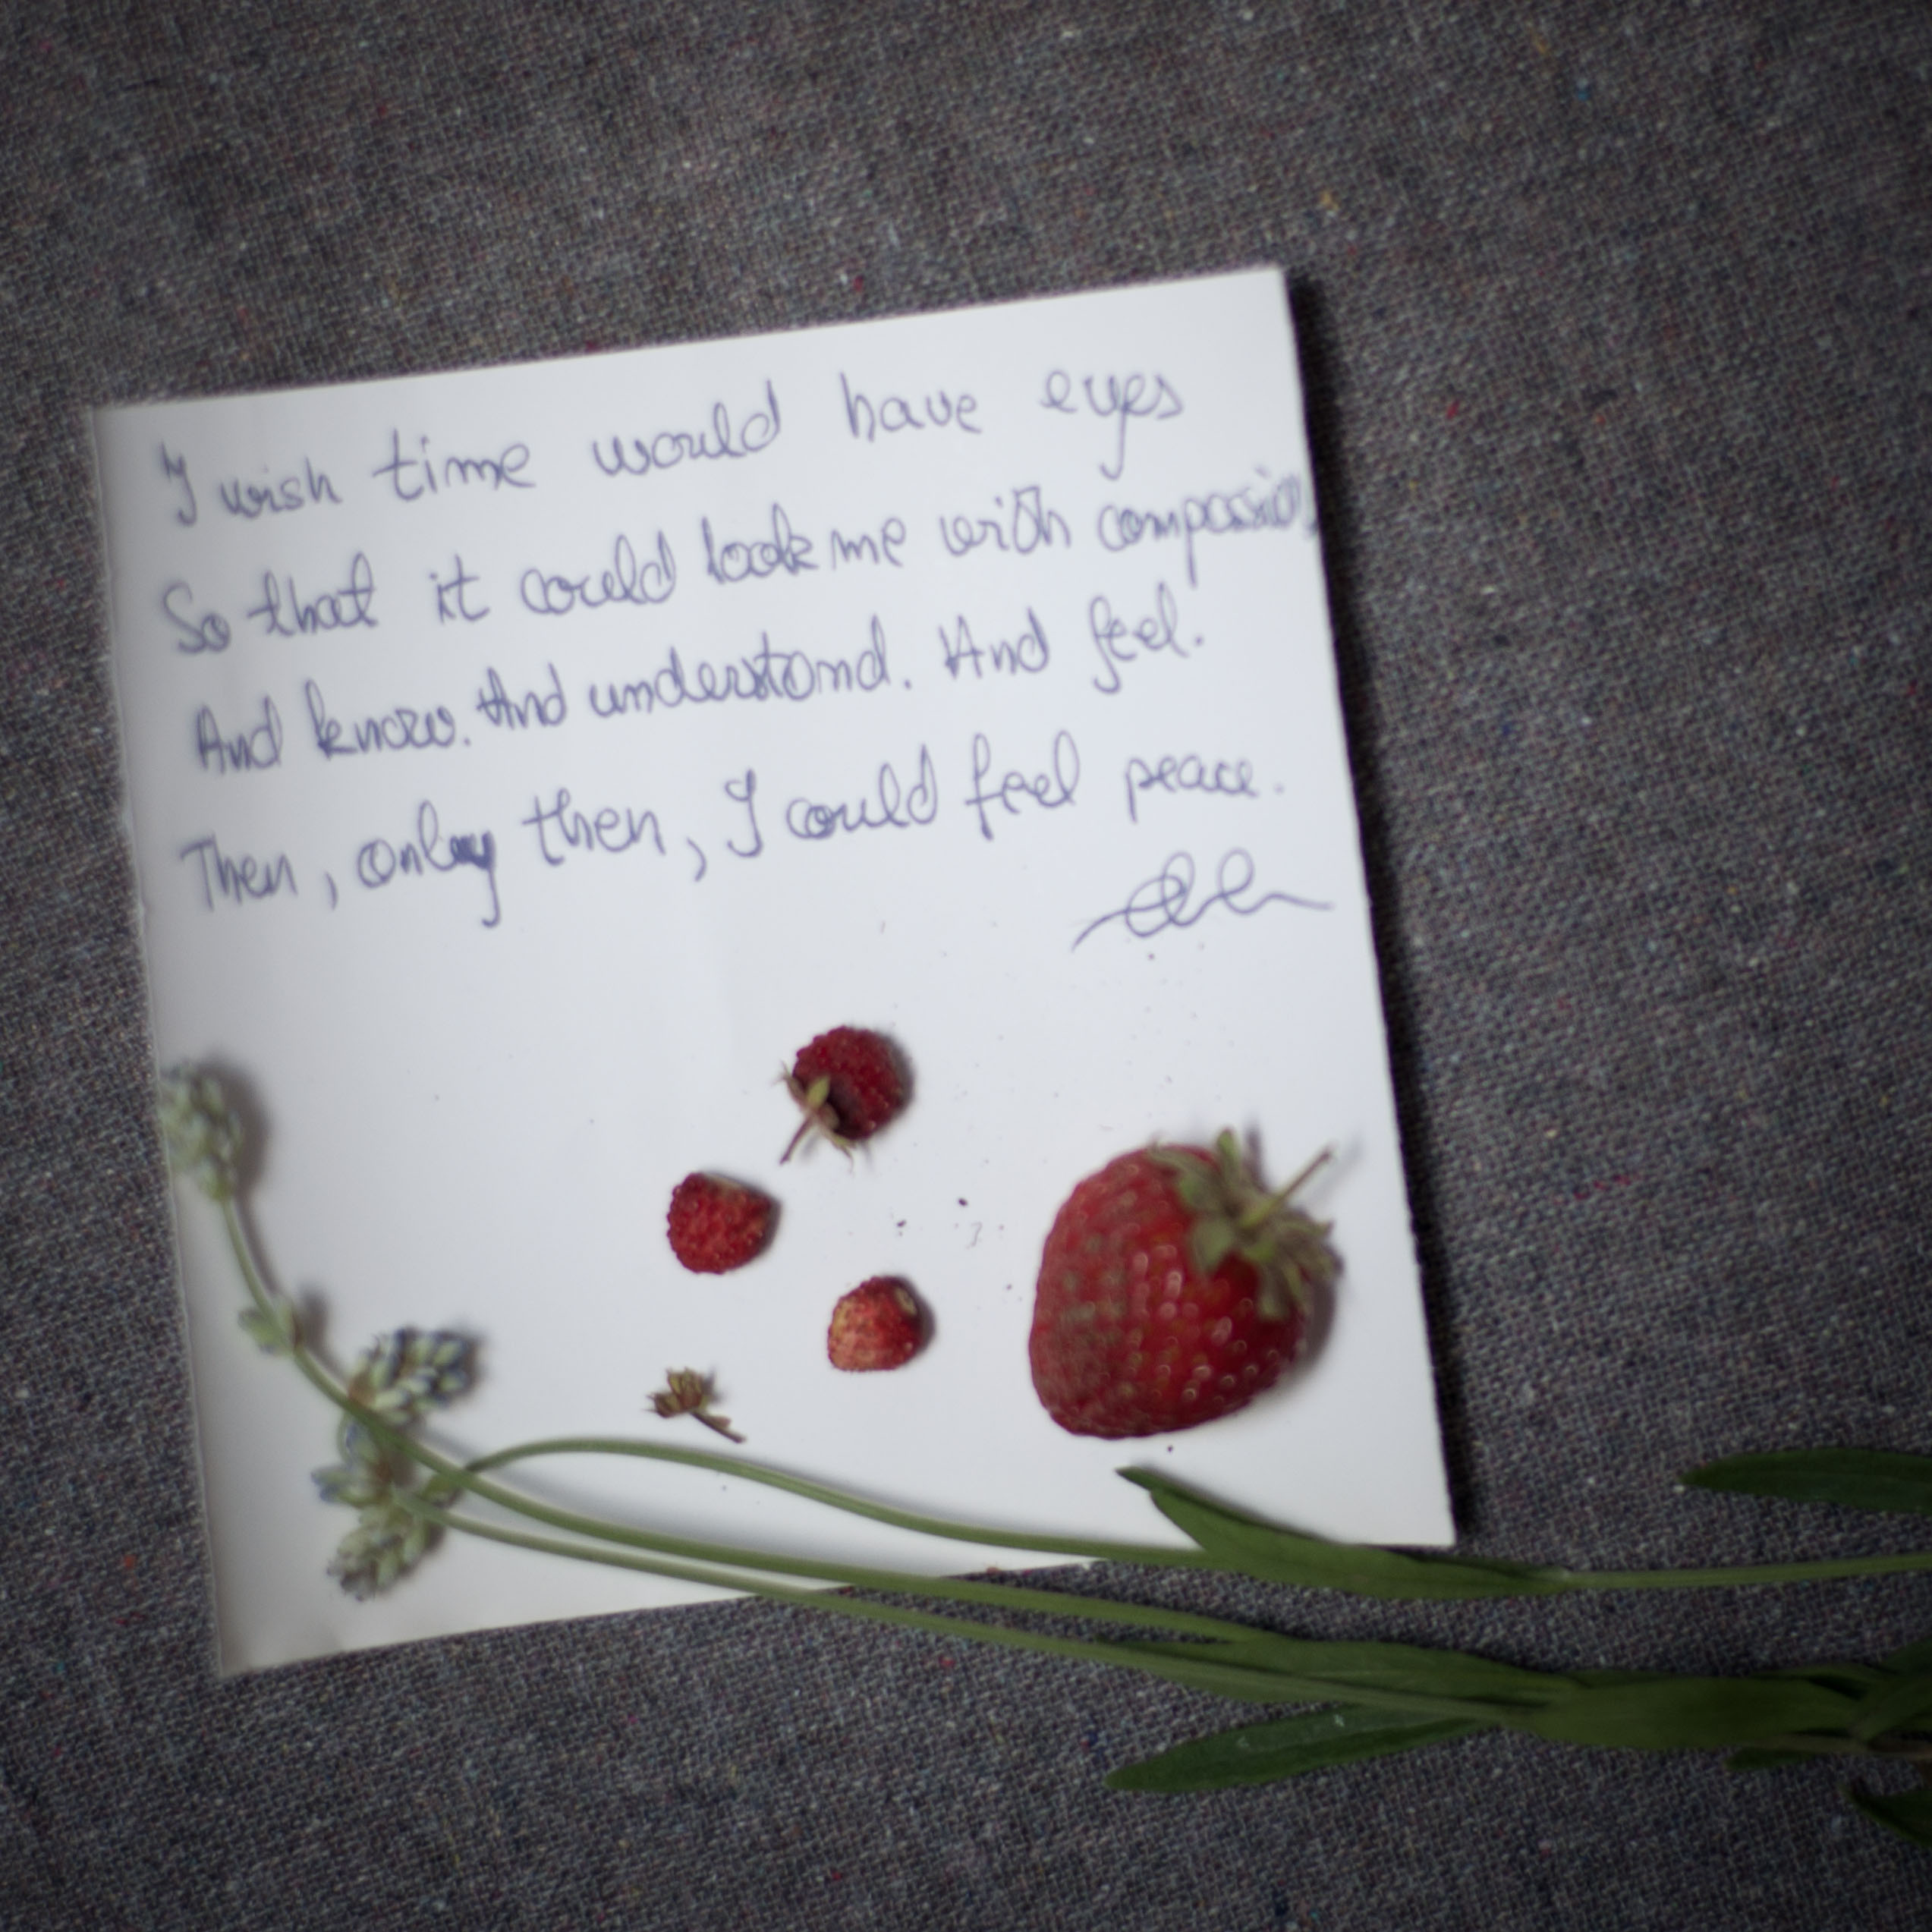 I wish time would have eyes
So that it could look me with compassion,
And know. And understand. And feel.
Then, only then, I could feel peace.